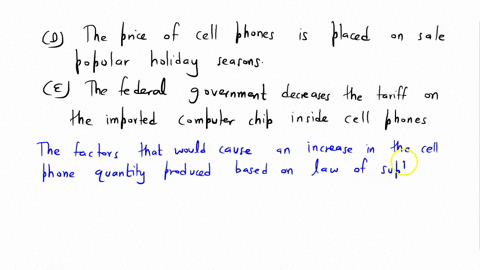 (D) The price of cell phones is placed on sale
popular holiday seasons.
(E) The federal government decreases the tariff on
the imported computer chip inside cell phones
The factors that would cause an increase in the cell
phone quantity produced based on law of sup